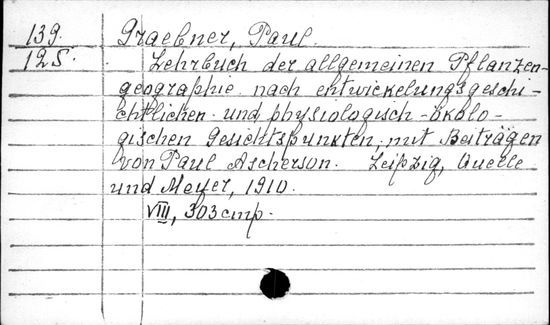 139. Graebner, Paul.
125. Lehrbuch der allgemeinen Pflanzen-
geographie nach entwickelungsgeschi-
chtlichen und physiologisch-ökolo-
gischen Gesichtspunkten, mit Beiträgen
von Paul Ascherson. Leipzig, Quelle
und Meyer, 1910.
VIII, 303 стр.